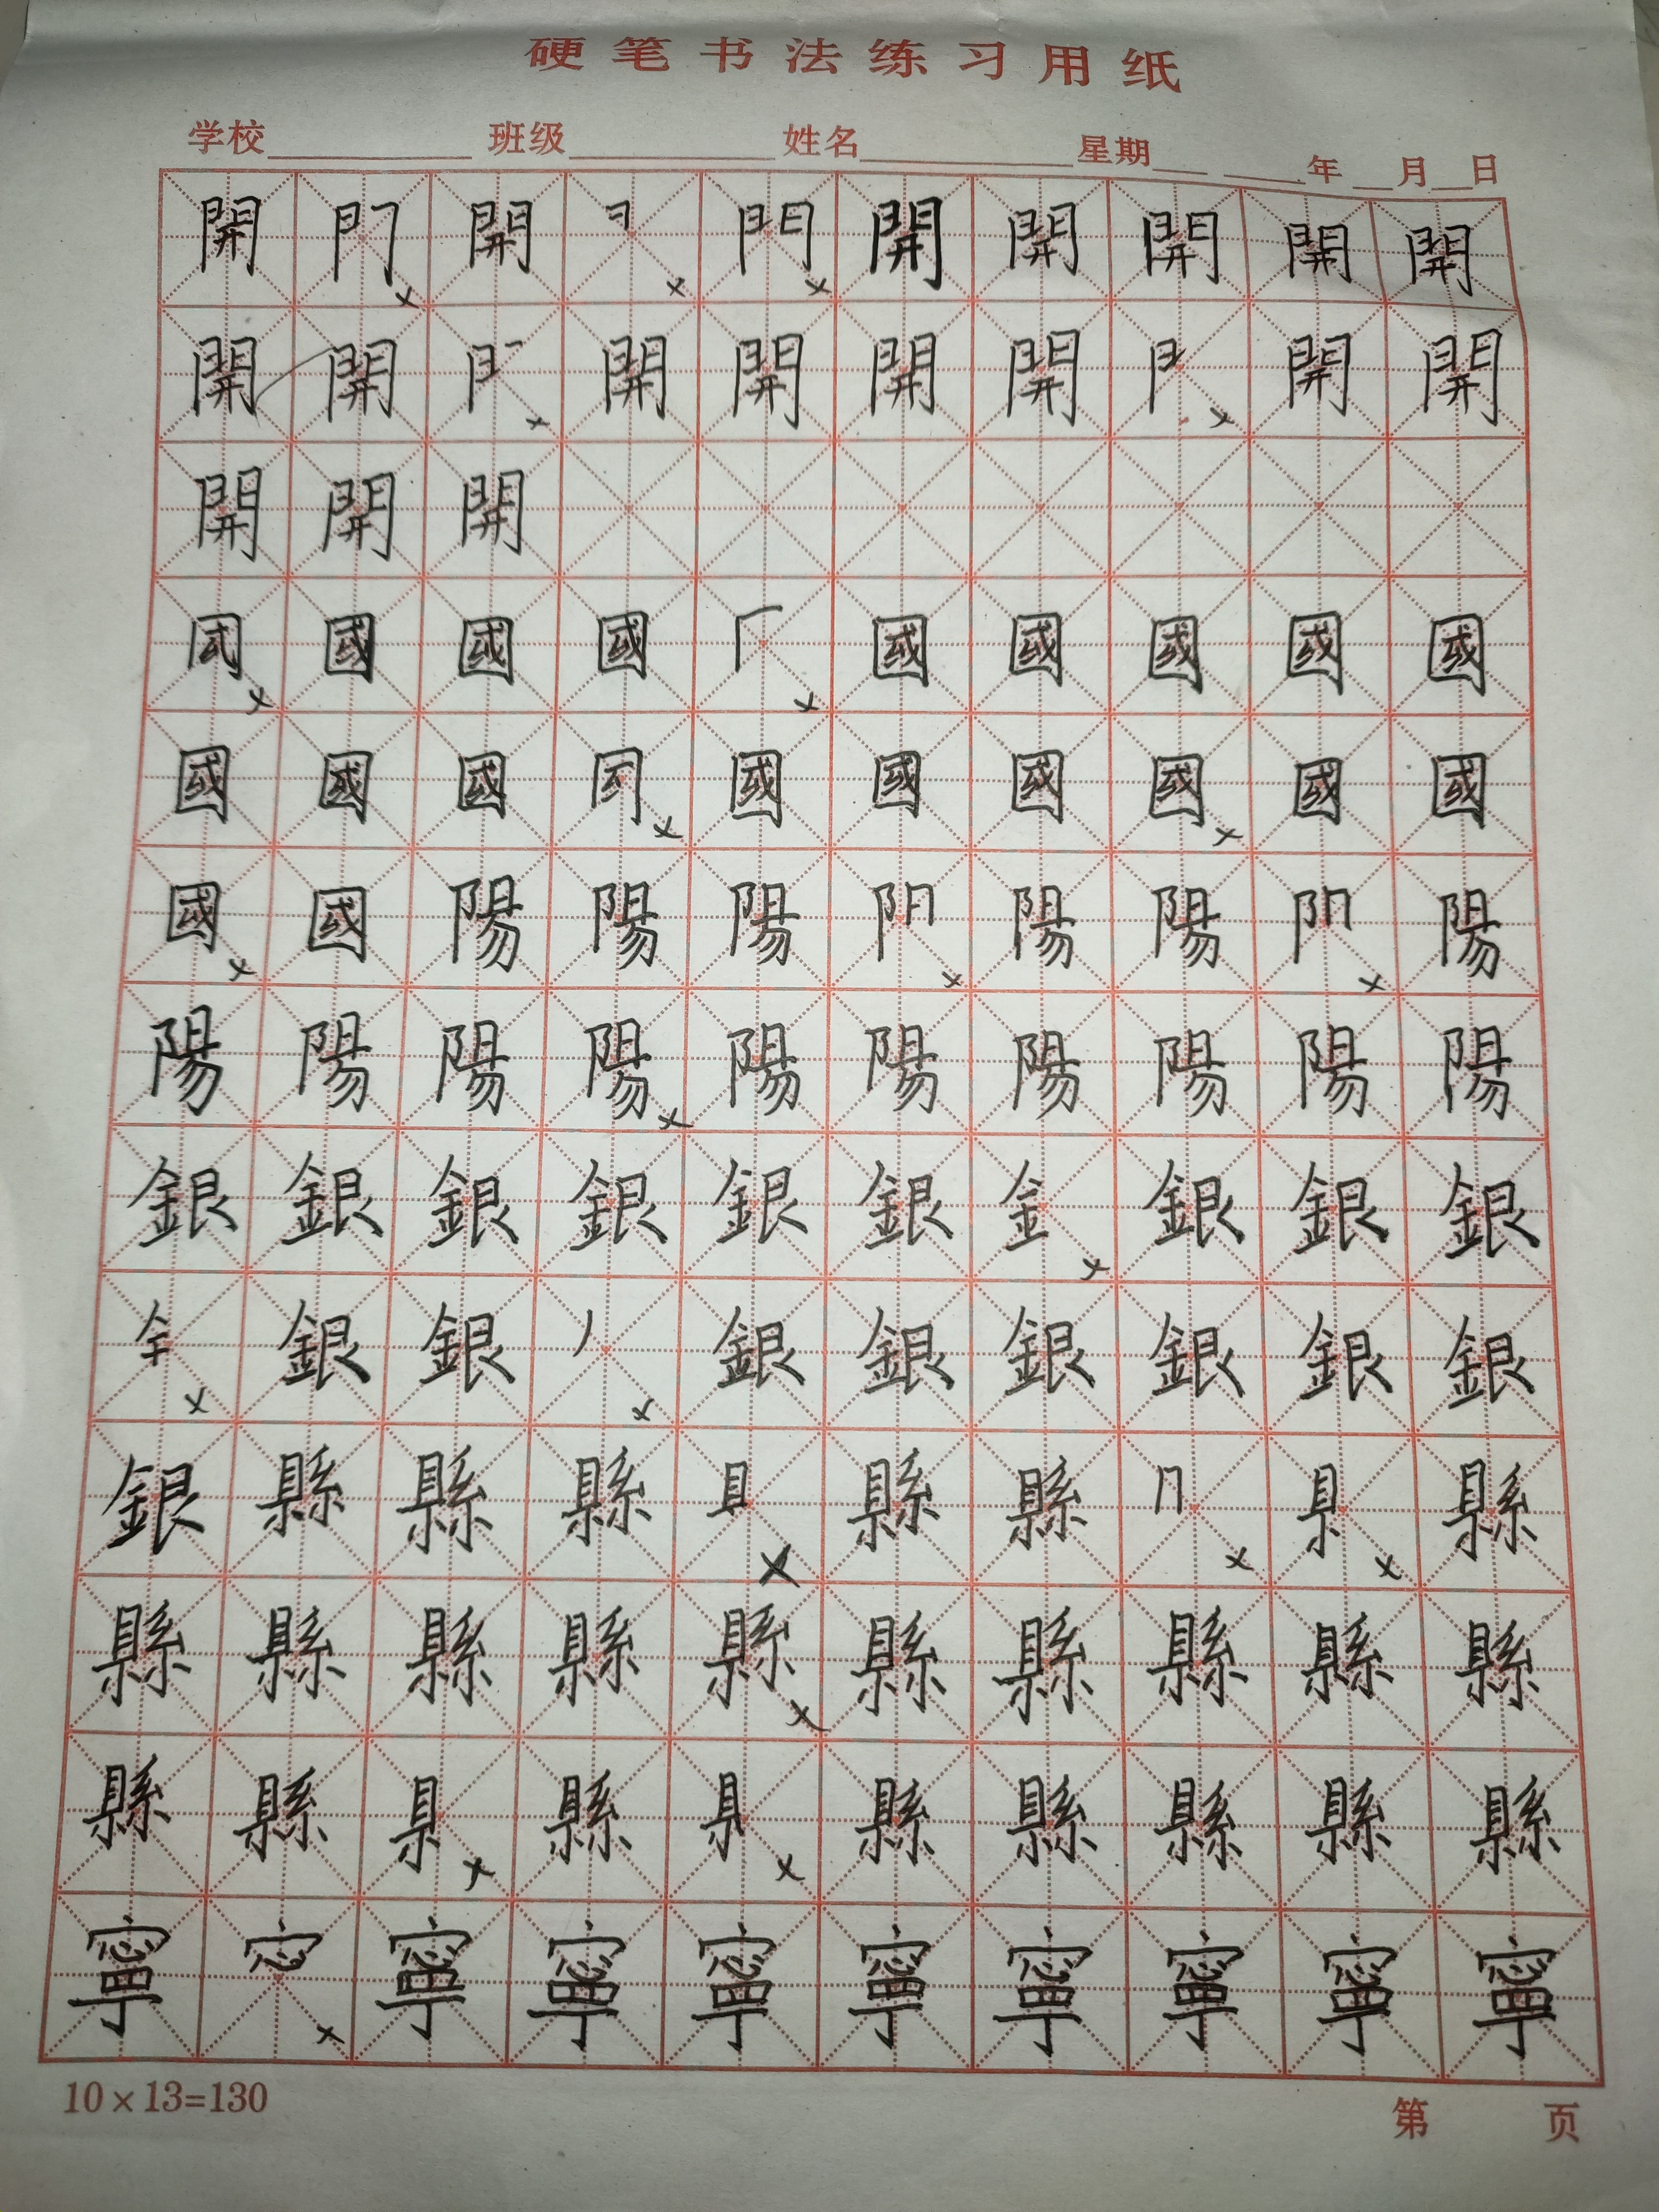 硬笔书法练习用纸
学校 班级 姓名 星期 年 月 日
開 門 開 開 開 開 開 開
開 開 開 開 開 開 開 開
開 開 開
國 國 國 國 國 國 國 國
國 國 國 國 國 國 國 國 國
國 國 陽 陽 陽 陽 陽 陽
陽 陽 陽 陽 陽 陽 陽 陽 陽 陽
銀 銀 銀 銀 銀 銀 金 銀 銀 銀
銀 銀 銀 銀 銀 銀 銀 銀
銀 縣 縣 縣 縣 縣 縣
縣 縣 縣 縣 縣 縣 縣 縣 縣 縣
縣 縣 縣 縣 縣 縣 縣 縣
寧 寧 寧 寧 寧 寧 寧 寧 寧
10×13=130
第 页